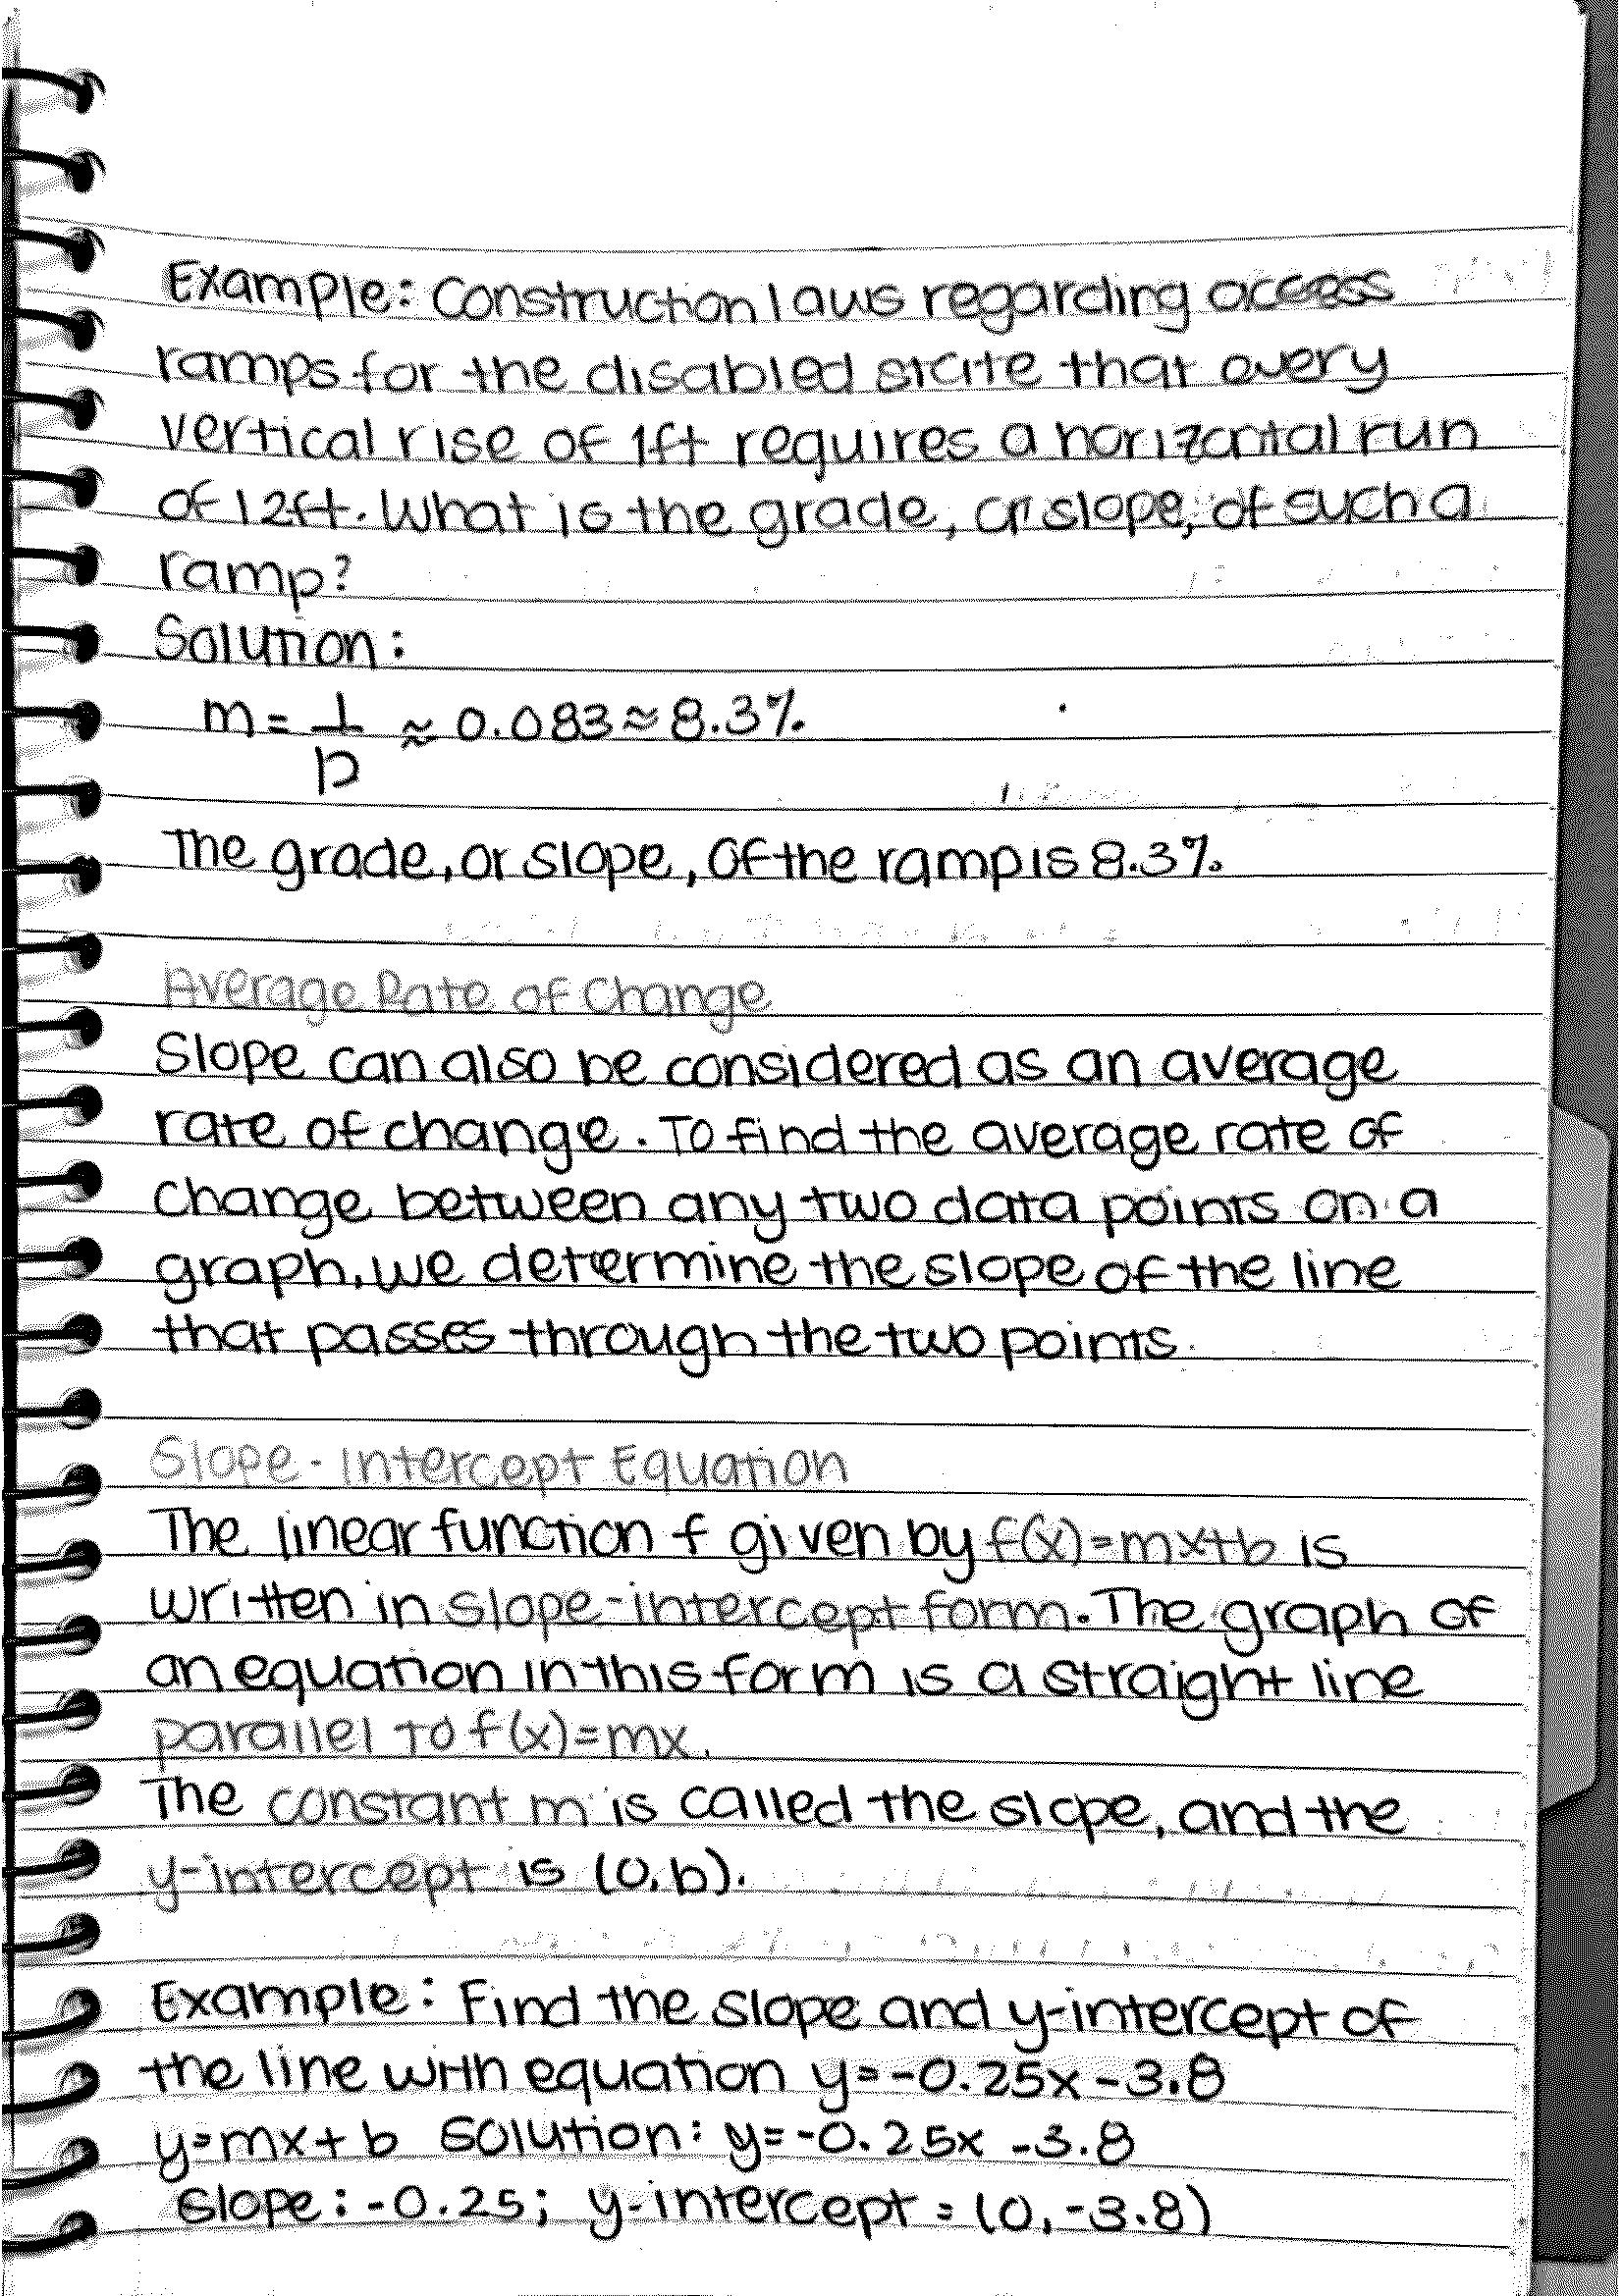 Example: Construction laws regarding access
ramps for the disabled state that every
vertical rise of 1ft requires a horizontal run
of 12ft. What is the grade, or slope, of such a
ramp?
Solution:
m = 1/12 ≈ 0.083 ≈ 8.3%
The grade, or slope, of the ramp is 8.3%
Average Rate of Change
Slope can also be considered as an average
rate of change. To find the average rate of
change between any two data points on a
graph, we determine the slope of the line
that passes through the two points.
Slope-Intercept Equation
The linear function f given by f(x)=mx+b is
written in slope-intercept form. The graph of
an equation in this form is a straight line
parallel to f(x)=mx.
The constant m is called the slope, and the
y-intercept is (0,b).
Example: Find the slope and y-intercept of
the line with equation y=-0.25x-3.8
y=mx+b Solution: y=-0.25x -3.8
Slope: -0.25; y-intercept = (0,-3.8)